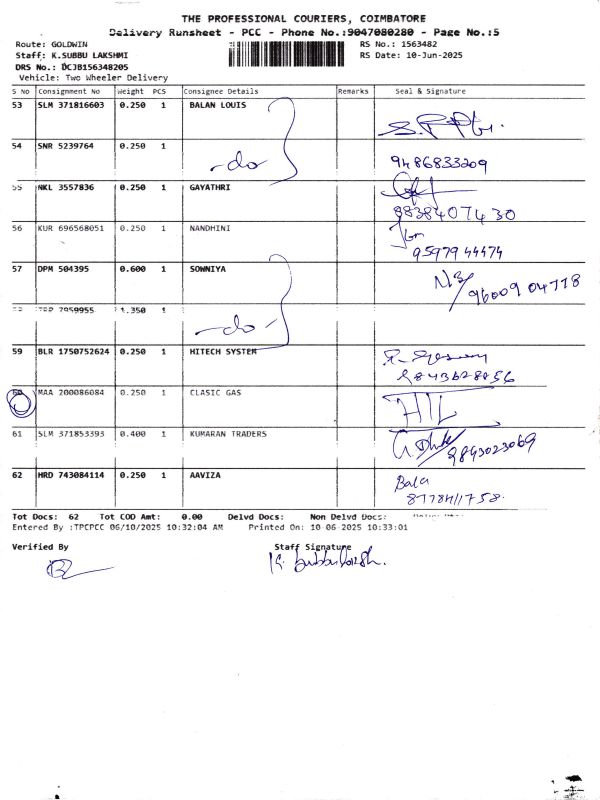 THE PROFESSIONAL COURIERS, COIMBATORE
Delivery Runsheet - PCC - Phone No.:9047080280 - Page No.:5
Route: GOLDWIN RS No.: 1563482
Staff: K.SUBBU LAKSHMI RS Date: 10-Jun-2025
DRS No.: DCJB156348205
Vehicle: Two Wheeler Delivery
S No Consignment No Weight PCS Consignee Details Remarks Seal & Signature
53 SLM 371816603 0.250 1 BALAN LOUIS
54 SNR 5239764 0.250 1 -do 9486833209
55 NKL 3557836 0.250 1 GAYATHRI 9838407430
56 KUR 696568051 0.250 1 NANDHINI 9597944474
57 DPM 504395 0.600 1 SOWNIYA 9600904718
7959955 1.350 1 -do-
59 BLR 1750752624 0.250 1 HITECH SYSTEM 9843628856
60 MAA 200086084 0.250 1 CLASIC GAS HIL
61 SLM 371853393 0.400 1 KUMARAN TRADERS 9843023069
62 HRD 743084114 0.250 1 AAVIZA Bala
Tot Docs: 62 Tot COD Amt: 0.00 Delvd Docs: Non Delvd Docs:
Entered By :TPCPCC 06/10/2025 10:32:04 AM Printed On: 10-06-2025 10:33:01
Verified By Staff Signature